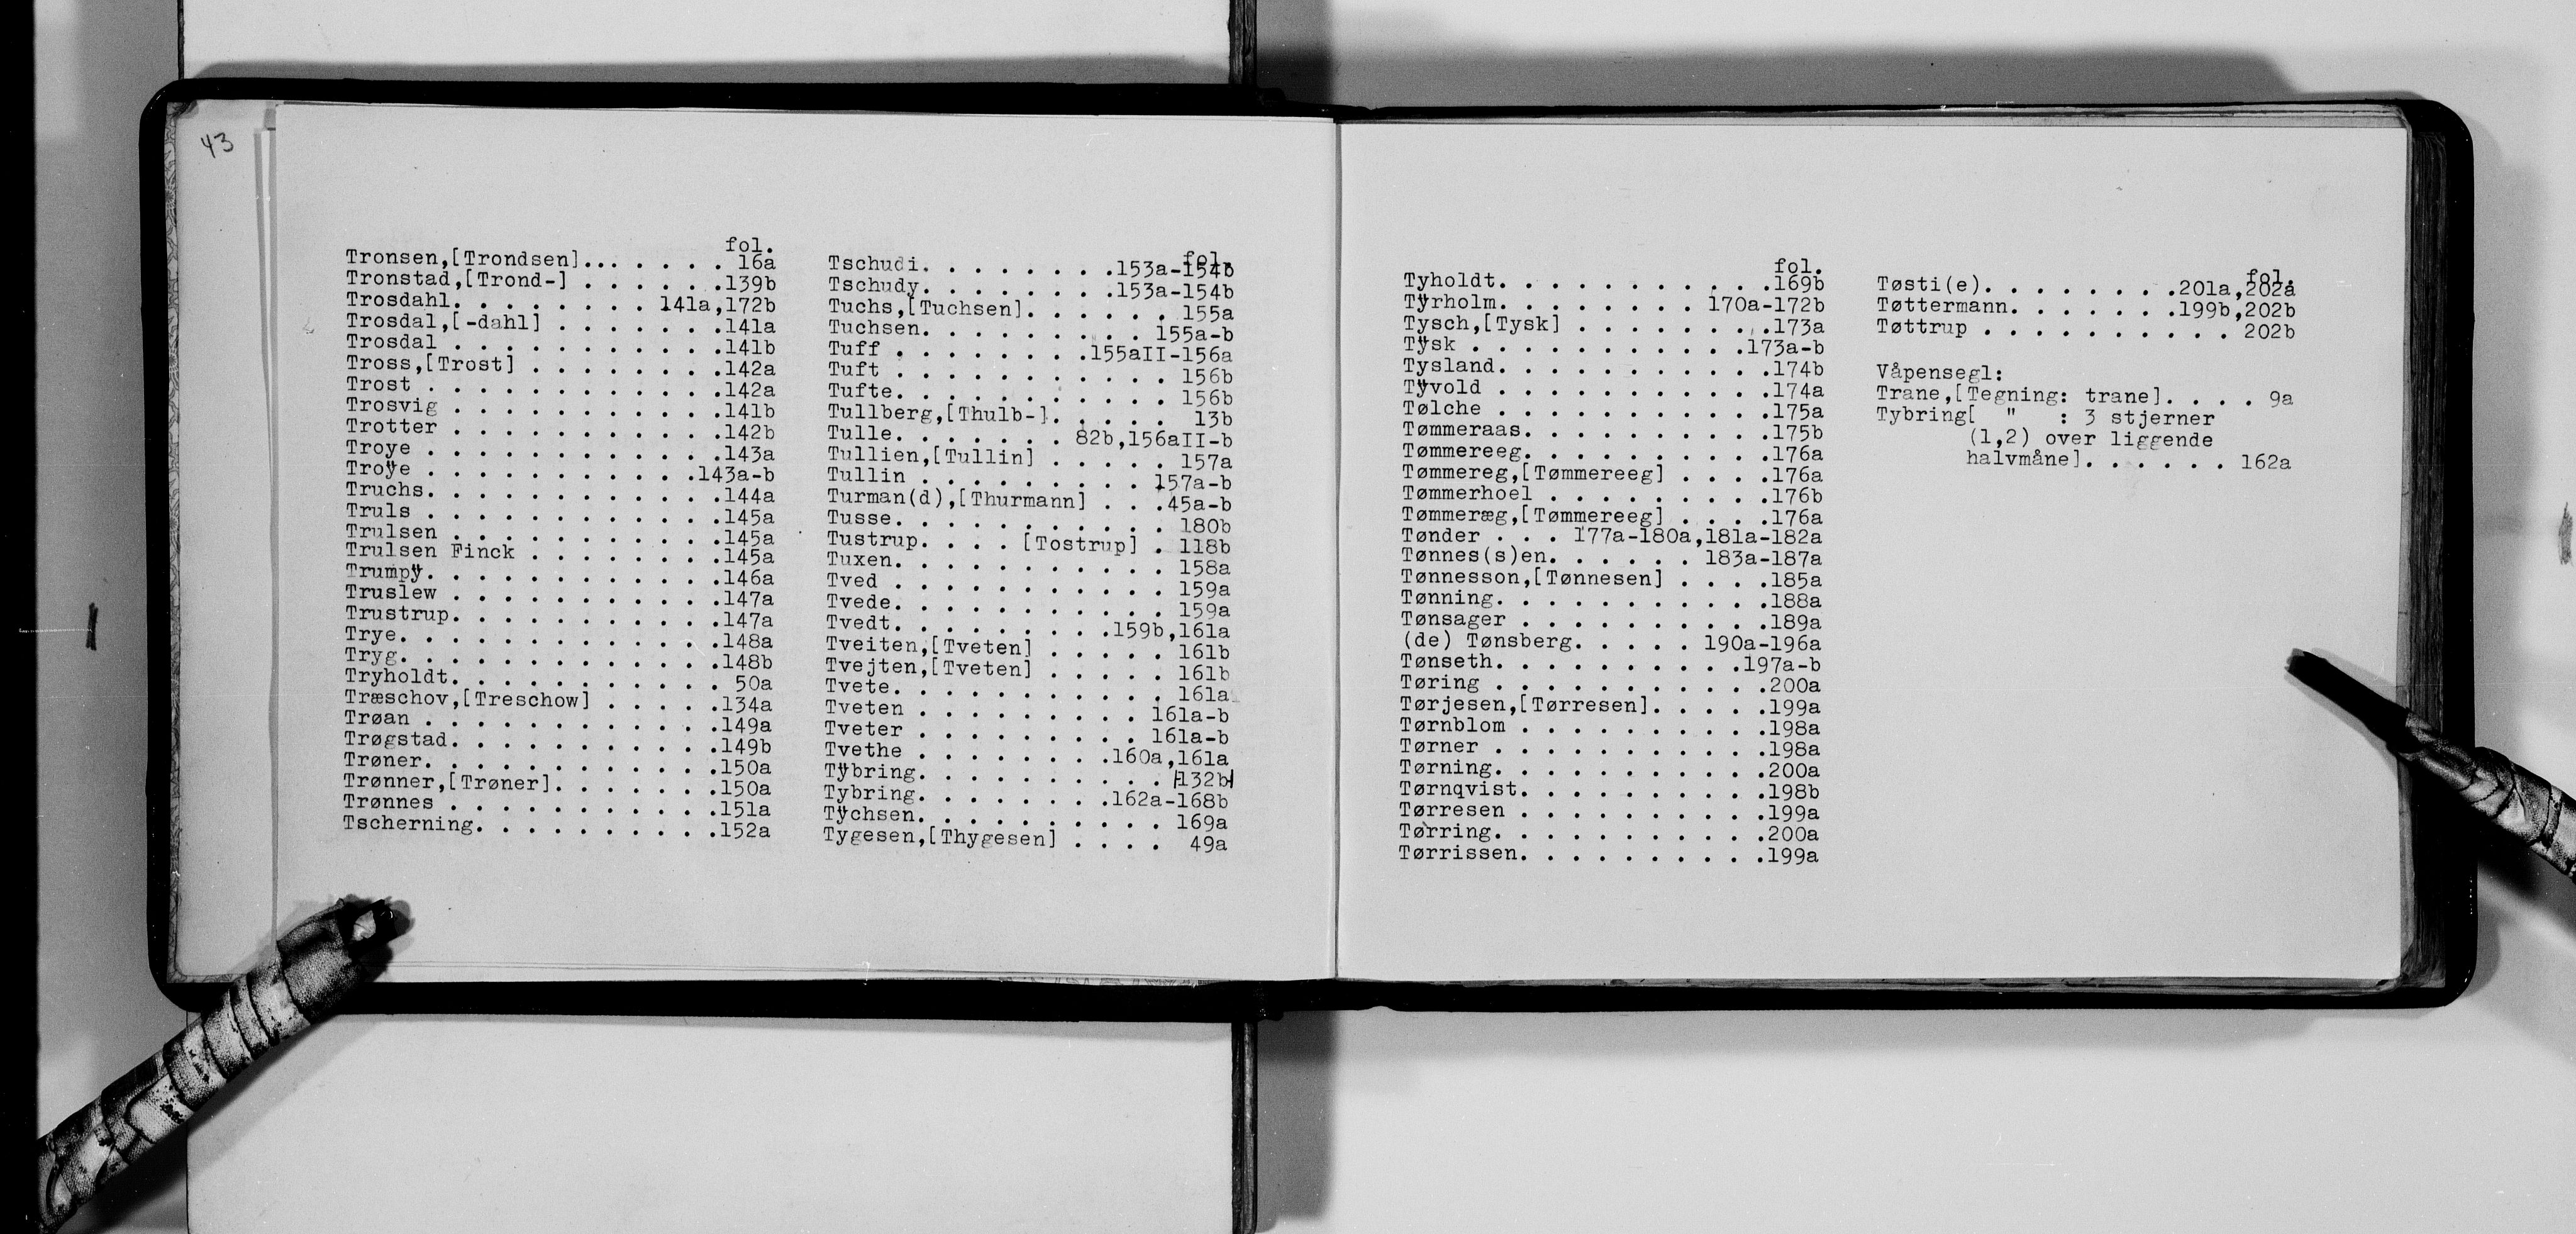 43
fol.
Tronsen,[Trondsen]... . . . . 16a
Tronstad,[Trond-] . . . . . .139b
Trosdahl. . . . . . . . 141a,172b
Trosdal,[-dahl] . . . . . . .141a
Trosdal . . . . . . . . . . .141b
Tross,[Trost] . . . . . . . .142a
Trost . . . . . . . . . . . .142a
Trosvig . . . . . . . . . . .141b
Trotter . . . . . . . . . . .142b
Troye . . . . . . . . . . . .143a
Troÿe . . . . . . . . . . .143a-b
Truchs. . . . . . . . . . . .144a
Truls . . . . . . . . . . . .145a
Trulsen . . . . . . . . . . .145a
Trulsen Finck . . . . . . . .145a
Trumpÿ. . . . . . . . . . . .146a
Truslew . . . . . . . . . . .147a
Trustrup. . . . . . . . . . .147a
Trye. . . . . . . . . . . . .148a
Tryg. . . . . . . . . . . . .148b
Tryholdt. . . . . . . . . . . 50a
Træschov,[Treschow] . . . . .134a
Trøan . . . . . . . . . . . .149a
Trøgstad. . . . . . . . . . .149b
Trøner. . . . . . . . . . . .150a
Trønner,[Trøner]. . . . . . .150a
Trønnes . . . . . . . . . . .151a
Tscherning. . . . . . . . . .152a
fol.
Tschudi. . . . . . . .153a-154b
Tschudy. . . . . . . .153a-154b
Tuchs,[Tuchsen]. . . . . . 155a
Tuchsen. . . . . . . . . 155a-b
Tuff . . . . . . . .155aII-156a
Tuft . . . . . . . . . . . 156b
Tufte. . . . . . . . . . . 156b
Tullberg,[Thulb-]. . . . . 13b
Tulle. . . . . . . 82b,156aII-b
Tullien,[Tullin] . . . . . 157a
Tullin . . . . . . . . . 157a-b
Turman(d),[Thurmann] . . .45a-b
Tusse. . . . . . . . . . . 180b
Tustrup. . . . [Tostrup] . 118b
Tuxen. . . . . . . . . . . 158a
Tved . . . . . . . . . . . 159a
Tvede. . . . . . . . . . . 159a
Tvedt. . . . . . . . .159b,161a
Tveiten,[Tveten] . . . . . 161b
Tvejten,[Tveten] . . . . . 161b
Tvete. . . . . . . . . . . 161a
Tveten . . . . . . . . . 161a-b
Tveter . . . . . . . . . 161a-b
Tvethe . . . . . . . .160a,161a
Tÿbring. . . . . . . . . . [132b]
Tybring. . . . . . . .162a-168b
Tÿchsen. . . . . . . . . . 169a
Tygesen,[Thygesen] . . . . 49a
fol.
Tyholdt. . . . . . . . . . .169b
Tÿrholm. . . . . . . . 170a-172b
Tysch,[Tysk] . . . . . . . .173a
Tÿsk . . . . . . . . . . .173a-b
Tysland. . . . . . . . . . .174b
Tÿvold . . . . . . . . . . .174a
Tølche . . . . . . . . . . .175a
Tømmeraas. . . . . . . . . .175b
Tømmereeg. . . . . . . . . .176a
Tømmereg,[Tømmereeg] . . . .176a
Tømmerhoel . . . . . . . . .176b
Tømmeræg,[Tømmereeg] . . . .176a
Tønder . . . 177a-180a,181a-182a
Tønnes(s)en. . . . . . 183a-187a
Tønnesson,[Tønnesen] . . . .185a
Tønning. . . . . . . . . . .188a
Tønsager . . . . . . . . . .189a
(de) Tønsberg. . . . . 190a-196a
Tønseth. . . . . . . . . .197a-b
Tøring . . . . . . . . . . .200a
Tørjesen,[Tørresen]. . . . .199a
Tørnblom . . . . . . . . . .198a
Tørner . . . . . . . . . . .198a
Tørning. . . . . . . . . . .200a
Tørnqvist. . . . . . . . . .198b
Tørresen . . . . . . . . . .199a
Tørring. . . . . . . . . . .200a
Tørrissen. . . . . . . . . .199a
fol.
Tøsti(e). . . . . . . .201a,202a
Tøttermann. . . . . . .199b,202b
Tøttrup . . . . . . . . . . 202b
Våpensegl:
Trane,[Tegning: trane]. . . . 9a
Tybring[ " : 3 stjerner
(1,2) over liggende
halvmåne]. . . . . . 162a